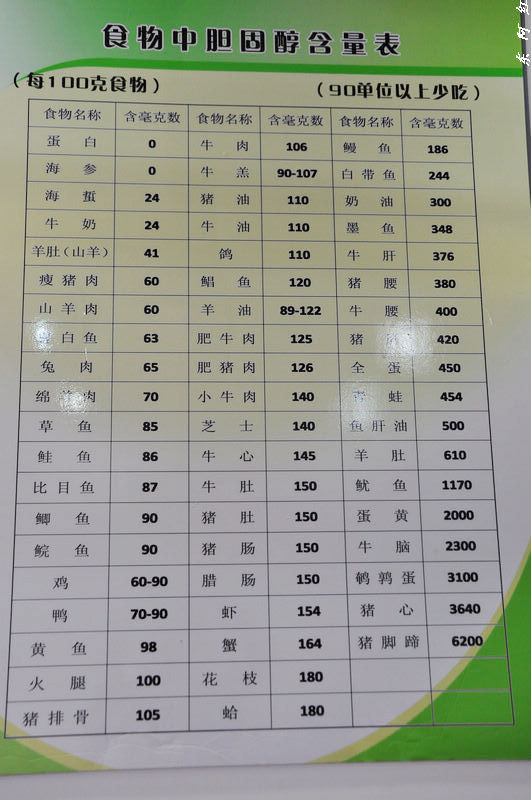 东阿红
食物中胆固醇含量表
（每100克食物） （90单位以上少吃）
食物名称 含毫克数 食物名称 含毫克数 食物名称 含毫克数
蛋白 0 牛肉 106 鳗鱼 186
海参 0 牛羔 90-107 白带鱼 244
海蜇 24 猪油 110 奶油 300
牛奶 24 牛油 110 墨鱼 348
羊肚（山羊） 41 鸽 110 牛肝 376
瘦猪肉 60 鲳鱼 120 猪腰 380
山羊肉 60 羊油 89-122 牛腰 400
白鱼 63 肥牛肉 125 猪 420
兔肉 65 肥猪肉 126 全蛋 450
绵羊肉 70 小牛肉 140 青蛙 454
草鱼 85 芝士 140 鱼肝油 500
鲑鱼 86 牛心 145 羊肚 610
比目鱼 87 牛肚 150 鱿鱼 1170
鲫鱼 90 猪肚 150 蛋黄 2000
鲩鱼 90 猪肠 150 牛脑 2300
鸡 60-90 腊肠 150 鹌鹑蛋 3100
鸭 70-90 虾 154 猪心 3640
黄鱼 98 蟹 164 猪脚蹄 6200
火腿 100 花枝 180
猪排骨 105 蛤 180